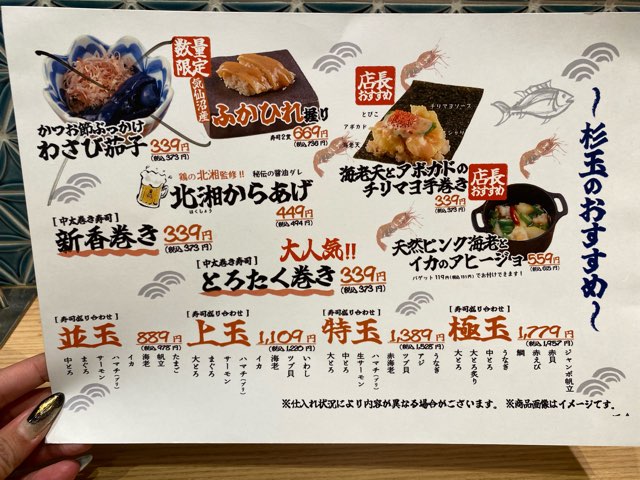 〜杉玉のおすすめ〜
かつお節ぶっかけ
わさび茄子 339円
(税込373円)
数量限定
気仙沼産
ふかひれ握り
寿司2貫 669円
(税込736円)
店長おすすめ
とびこ
アボカド
海老天
チリマヨソース
シャリ
海老天とアボカドの
チリマヨ手巻き
339円
(税込373円)
鶏の北湘監修!! 秘伝の醤油ダレ
北湘からあげ
ほくしょう
449円
(税込494円)
店長おすすめ
天然ピンク海老と
イカのアヒージョ 559円
(税込615円)
バゲット119円(税込131円)でお付けできます!
[中太巻き寿司]
新香巻き 339円
(税込373円)
大人気!!
[中太巻き寿司]
とろたく巻き 339円
(税込373円)
[寿司盛り合わせ]
並玉 889円
(税込978円)
たまご
帆立
海老
イカ
ハマチ(ブリ)
サーモン
まぐろ
中とろ
[寿司盛り合わせ]
上玉 1,109円
(税込1,220円)
いわし
ツブ貝
海老
イカ
ハマチ(ブリ)
サーモン
まぐろ
大とろ
[寿司盛り合わせ]
特玉 1,389円
(税込1,528円)
うなぎ
アジ
ツブ貝
赤海老
ハマチ(ブリ)
生サーモン
中とろ
大とろ
[寿司盛り合わせ]
極玉 1,779円
(税込1,957円)
ジャンボ帆立
赤貝
赤えび
鯛
うなぎ
中とろ
大とろ炙り
大とろ
※仕入れ状況により内容が異なる場合がございます。 ※商品画像はイメージです。